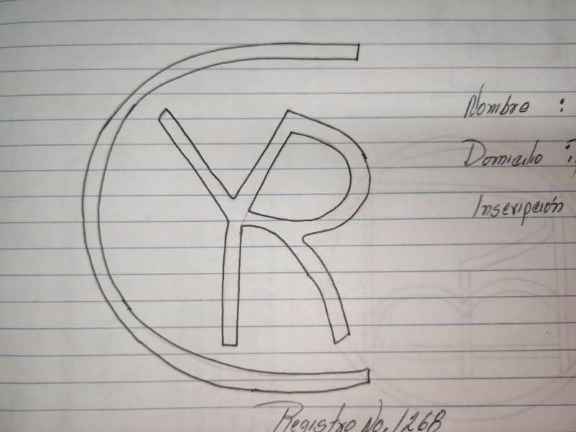 CYR
Nombre :
Domicilio :
Inscripción
Registro No. 126B